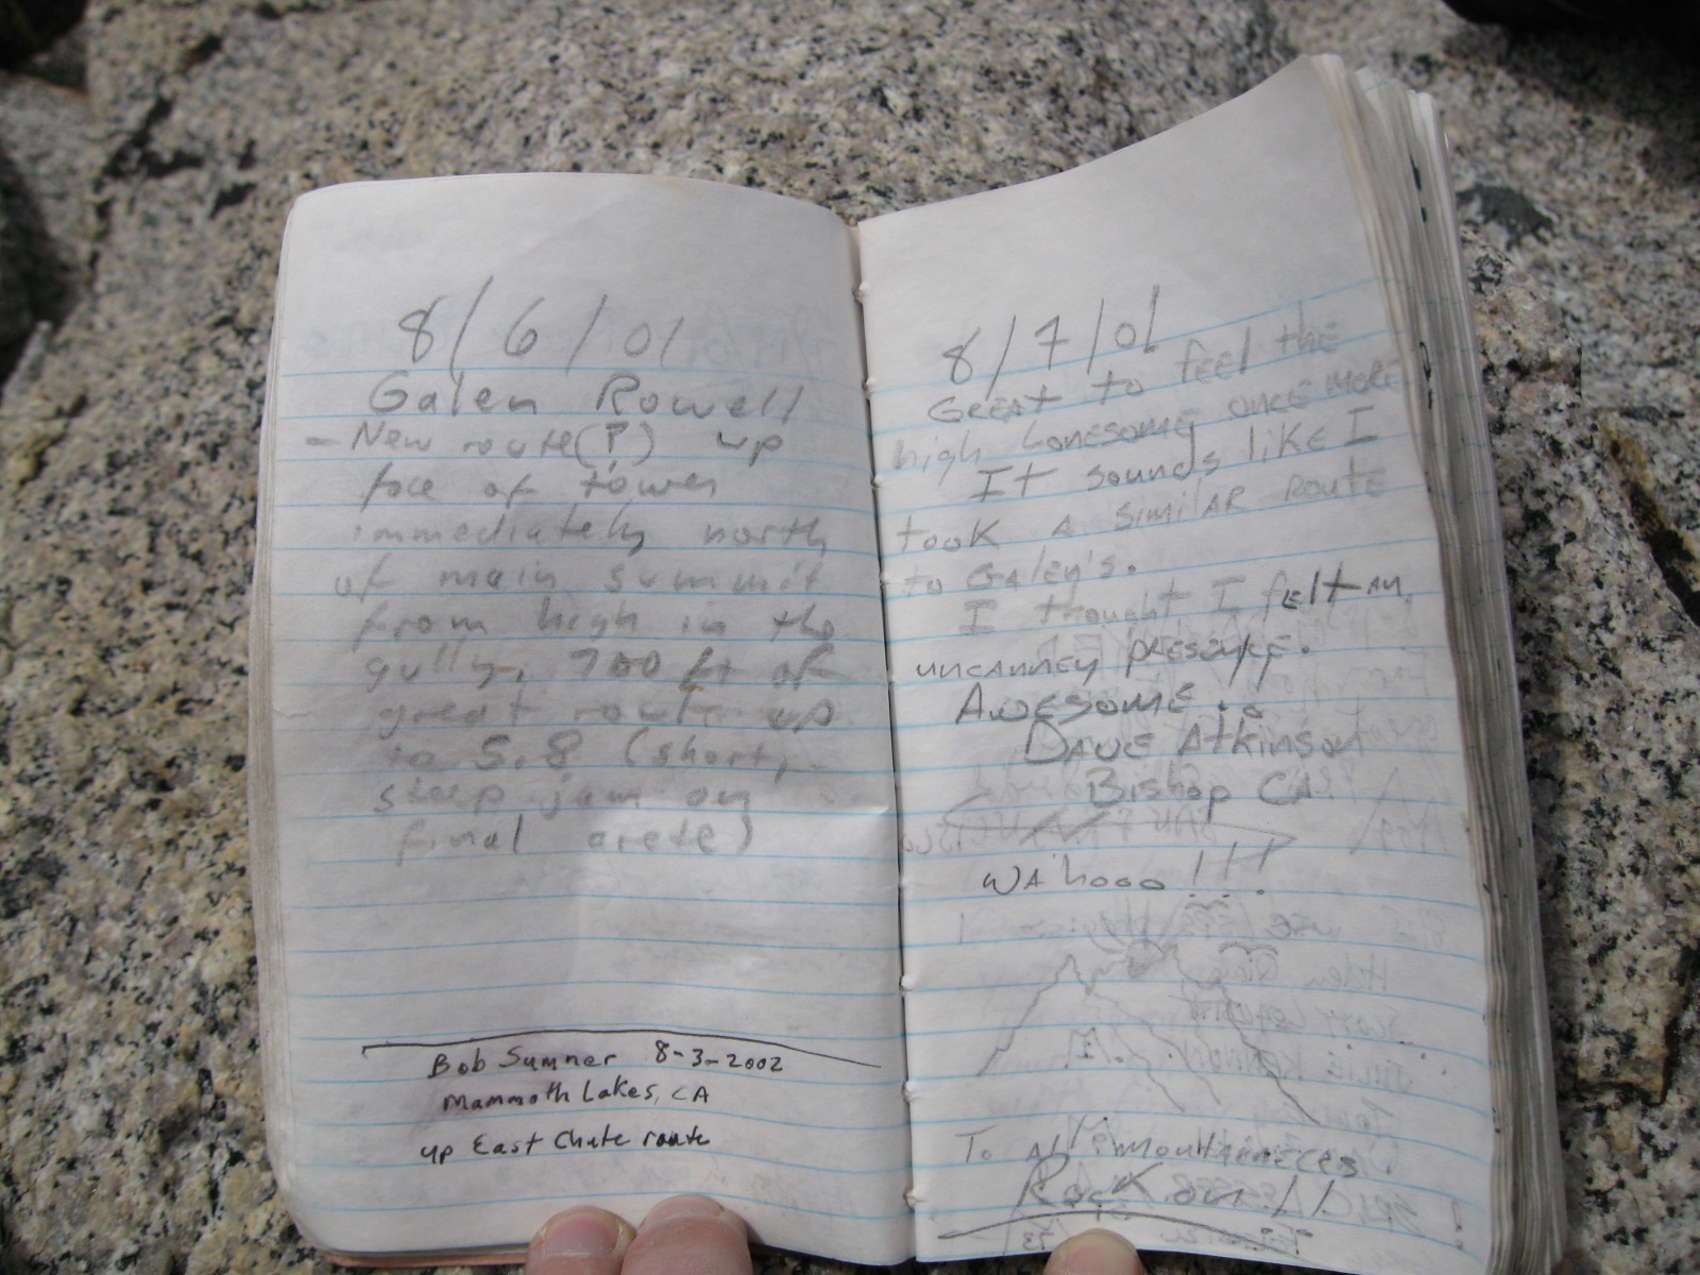 8/6/01
Galen Rowell
- New route(?) up
face of tower
immediately north
of main summit
from high in the
gully, 700 ft of
great route up
to 5.8 (short,
steep jam on
final arete)
Bob Sumner 8-3-2002
Mammoth Lakes, CA
up East Chute route
8/7/01
Great to feel the
high lonesome once more
It sounds like I
took a similar route
to Galen's.
I thought I felt an
uncanney presence.
Awesome.
Dave Atkinson
Bishop CA.
WA'hooo!!!
To All mountaineers
Rock on!!